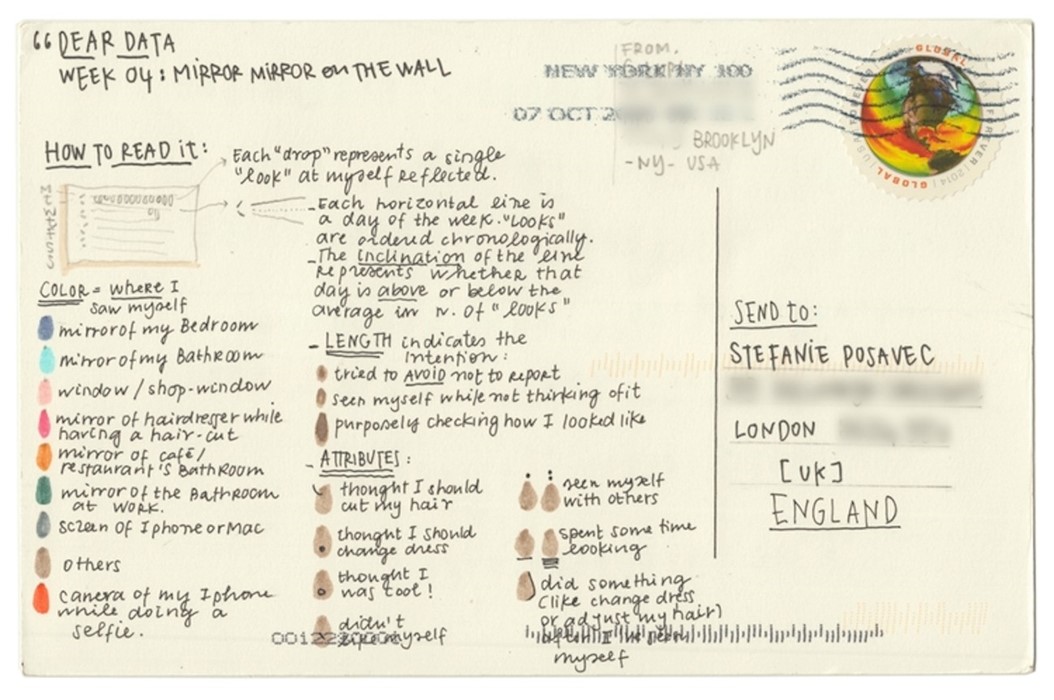 “DEAR DATA
WEEK 04: MIRROR MIRROR on THE WALL
FROM.
NEW YORK NY 100
07 OCT 2
BROOKLYN
-NY- USA
GLOBAL
FOREVER
| 2014 |
GLOBAL
| USA
HOW TO READ it:
Each "drop" represents a single
"look" at myself reflected.
-Each horizontal line is
a day of the week. "Looks"
are ordered chronologically.
-The inclination of the line
represents whether that
day is above or below the
average in n. of "looks"
COLOR = where I
saw myself
mirror of my Bedroom
mirror of my BathRoom
window / shop-window
mirror of hairdresser while
having a hair-cut
mirror of café/
restaurant's BathRoom
mirror of the BathRoom
at WORK.
screen of Iphone or Mac
others
camera of my Iphone
while doing a
selfie.
- LENGTH indicates the
Intention:
tried to AVOID not to report
seen myself while not thinking of it
purposely checking how I looked like
- ATTRIBUTES:
thought I should
cut my hair
thought I should
change dress
thought I
was cool!
didn't
myself
seen myself
with others
spent some time
looking
did something
(like change dress
or adjust my hair)
after I
myself
SEND to:
STEFANIE POSAVEC
LONDON
[UK]
ENGLAND